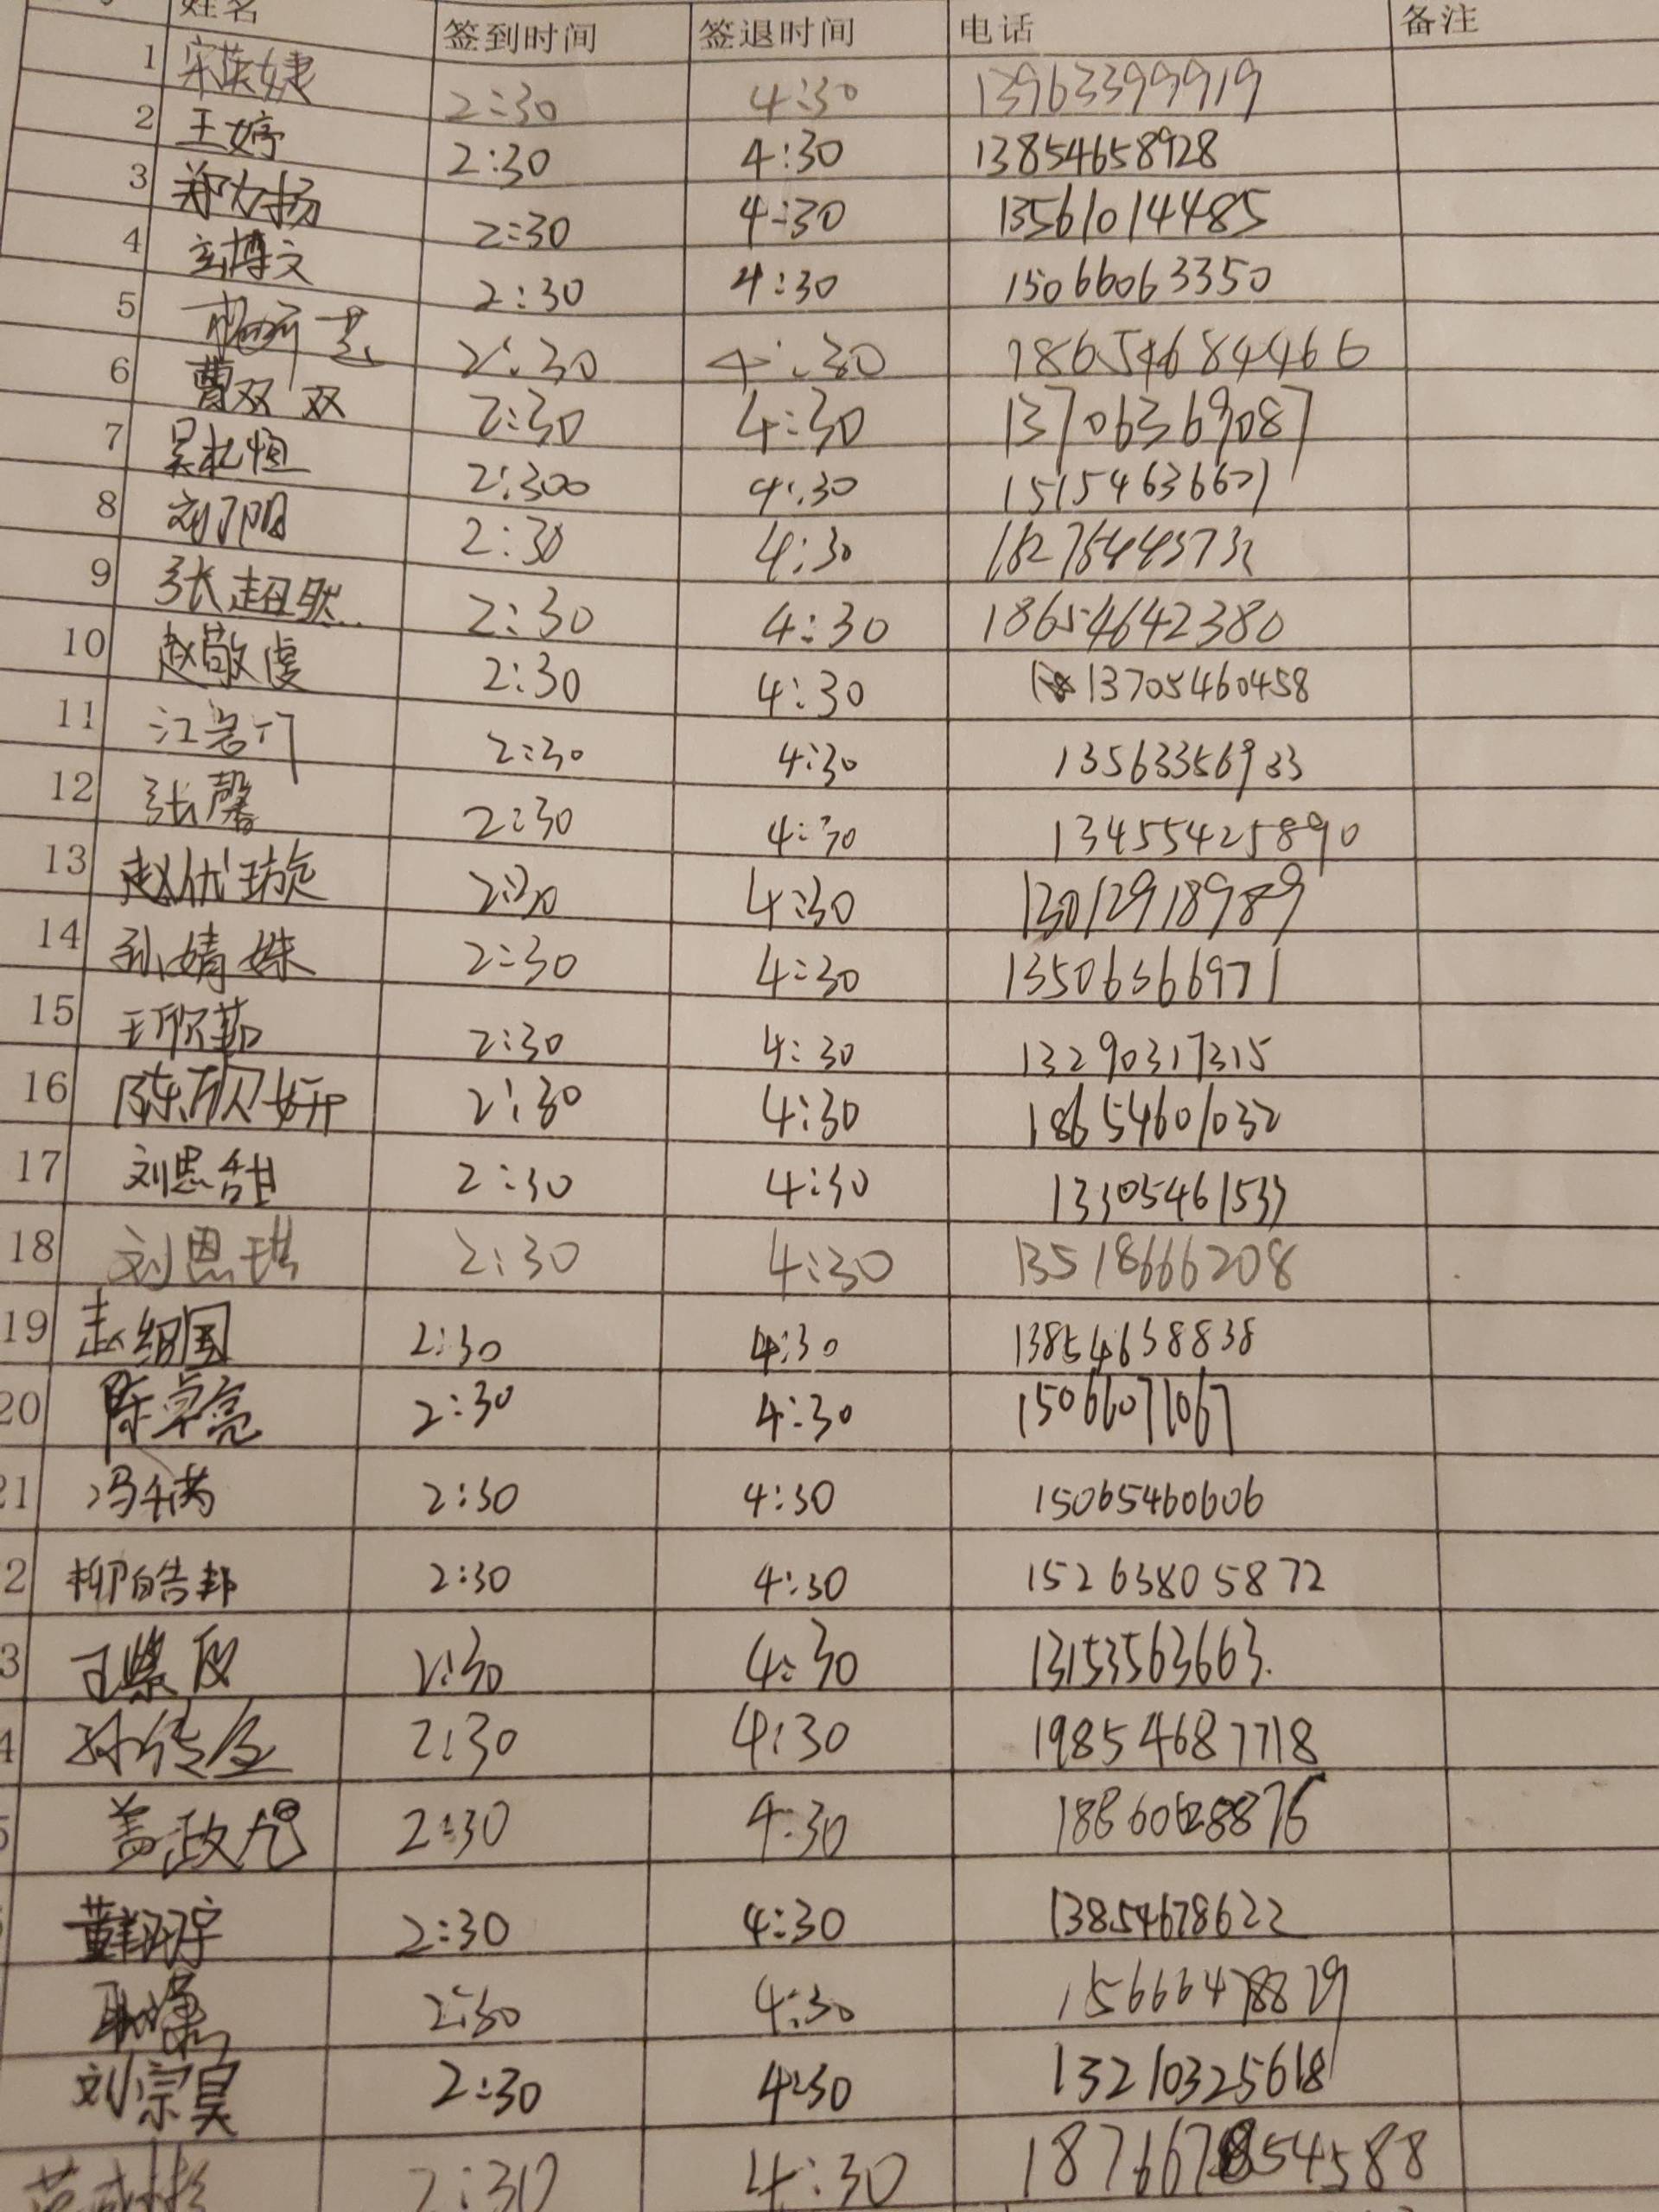 姓名 签到时间 签退时间 电话 备注
1 宋英婕 2:30 4:30 13963399919
2 王婷 2:30 4:30 13854658928
3 郑力扬 2:30 4:30 13561014485
4 玄博文 2:30 4:30 15066063350
5 2:30 4:30 18654684466
6 曹双双 2:30 4:30 13706369087
7 吴礼恒 2:300 4:30 15154636671
8 刘丁阳 2:30 4:30
9 张超然 2:30 4:30 18654642380
10 赵敬虔 2:30 4:30 13705460458
11 江若汀 2:30 4:30 13563356933
12 张馨 2:30 4:30 13455425890
13 赵优璇 2:30 4:30 13012918989
14 孙婧姝 2:30 4:30 13506366971
15 王欣茹 2:30 4:30 13290317315
16 陈欣妍 2:30 4:30 18654601032
17 刘思甜 2:30 4:30 13305461533
18 刘恩琪 2:30 4:30 13518666208
19 赵绍国 2:30 4:30 13854638838
20 陈卓亮 2:30 4:30 15066071067
21 冯千芮 2:30 4:30 15065460606
2 柳皓邦 2:30 4:30 15263805872
3 王紫 2:30 4:30 13153563663
4 孙传 2:30 4:30 19854687718
5 盖政 2:30 4:30
董翔宇 2:30 4:30 13854678622
2:30 4:30 15666478829
刘宗昊 2:30 4:30 13210325618
2:30 4:30